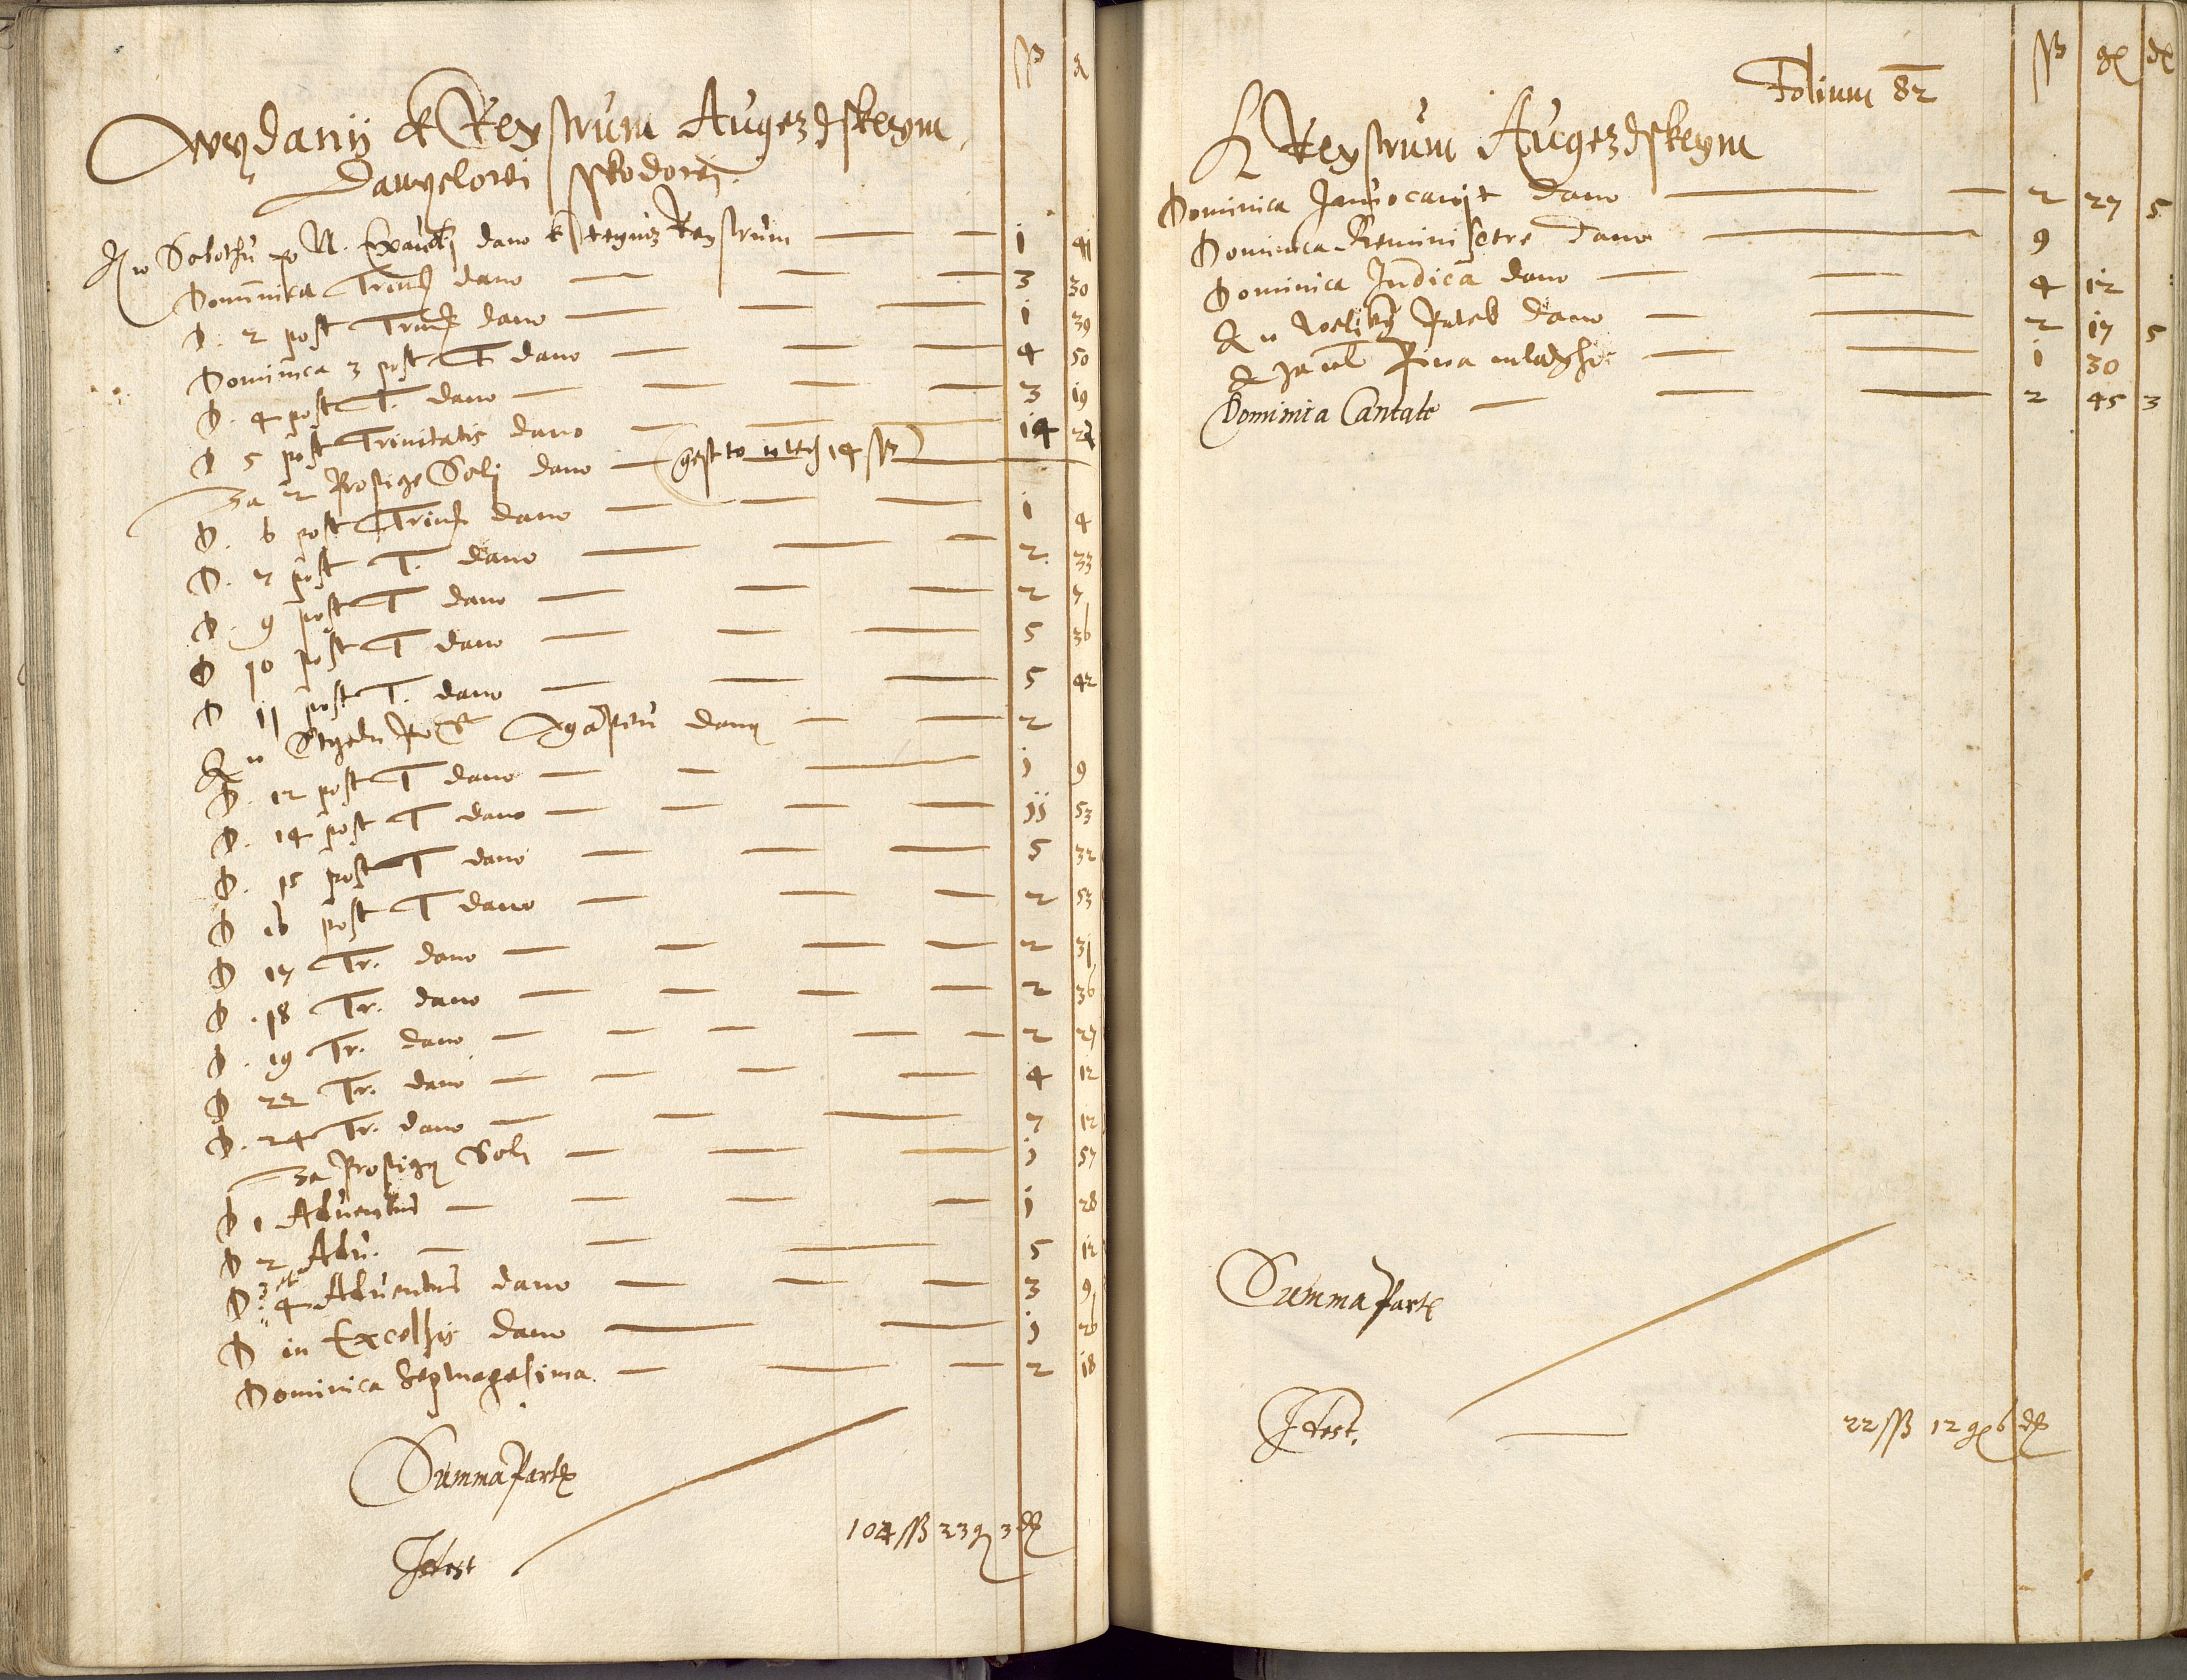 ß g
Weydanij k Reystrum Augezdskeym
Danyelowi Sskodowi.
A w Sobothu po N. Exaudi dano k tegmz Reystrum — 1 41
Dominica Trinit. dano — 3 30
D. 2 post Trinit. dano — 1 39
Dominica 3 post T. dano — 4 50
D. 4 post T. dano — 3 19
D 5 post Trinitatis dano — 14
Za 2 Prosyge Soli dano — (gest to w tech 14 ß)
D. 6 post Trinit. dano — 1 4
D. 7 post T. dano — 2 33
D. 9 post T dano — 2
D 10 post T dano — 5 36
D 11 post T. dano — 5 42
A w Strzedu po S. Agapitu dano — 2
D. 12 post T dano — 1 9
D. 14 post T dano — 11 53
D. 15 post T dano — 5 32
D 16 post T dano — 2 53
D 17 Tr. dano — 2 31
D. 18 Tr. dano — 2 36
D. 19 Tr. dano — 2 27
D 22 Tr. dano — 4 12
D. 24 Tr. dano — 7 12
Za Prosyge Soli — 1 57
D 1 Aduentus — 1 28
D 2 Adu. — 5 12
D. 3 et 4 Aduentus dano — 3 9
D in Excelsis dano — 1 26
Dominica Septuagesima — 2 18
Summa Partis
Facit 104 ß 23 g 3 d
Folium 82
ß g d
K Reystrum Augezdskeym
Dominica Jnuocauit dano — 2 27 5
Dominica Reminiscere dano — 9
Dominica Judica dano — 4 12
A w Weliky Patek dano — 2 17 5
A za piwa mladyho — 1 30
Dominica Cantate — 2 45 3
Summa Partis
Facit — 22 ß 12 g 6 d